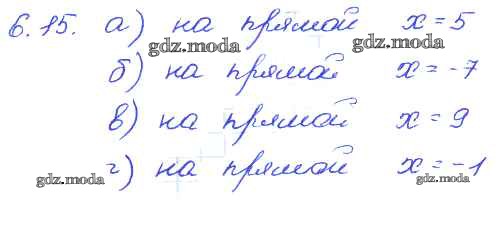 6.15. а) на прямой x = 5
gdz.moda gdz.moda
б) на прямой x = -7
в) на прямой x = 9
г) на прямой x = -1
gdz.moda gdz.moda